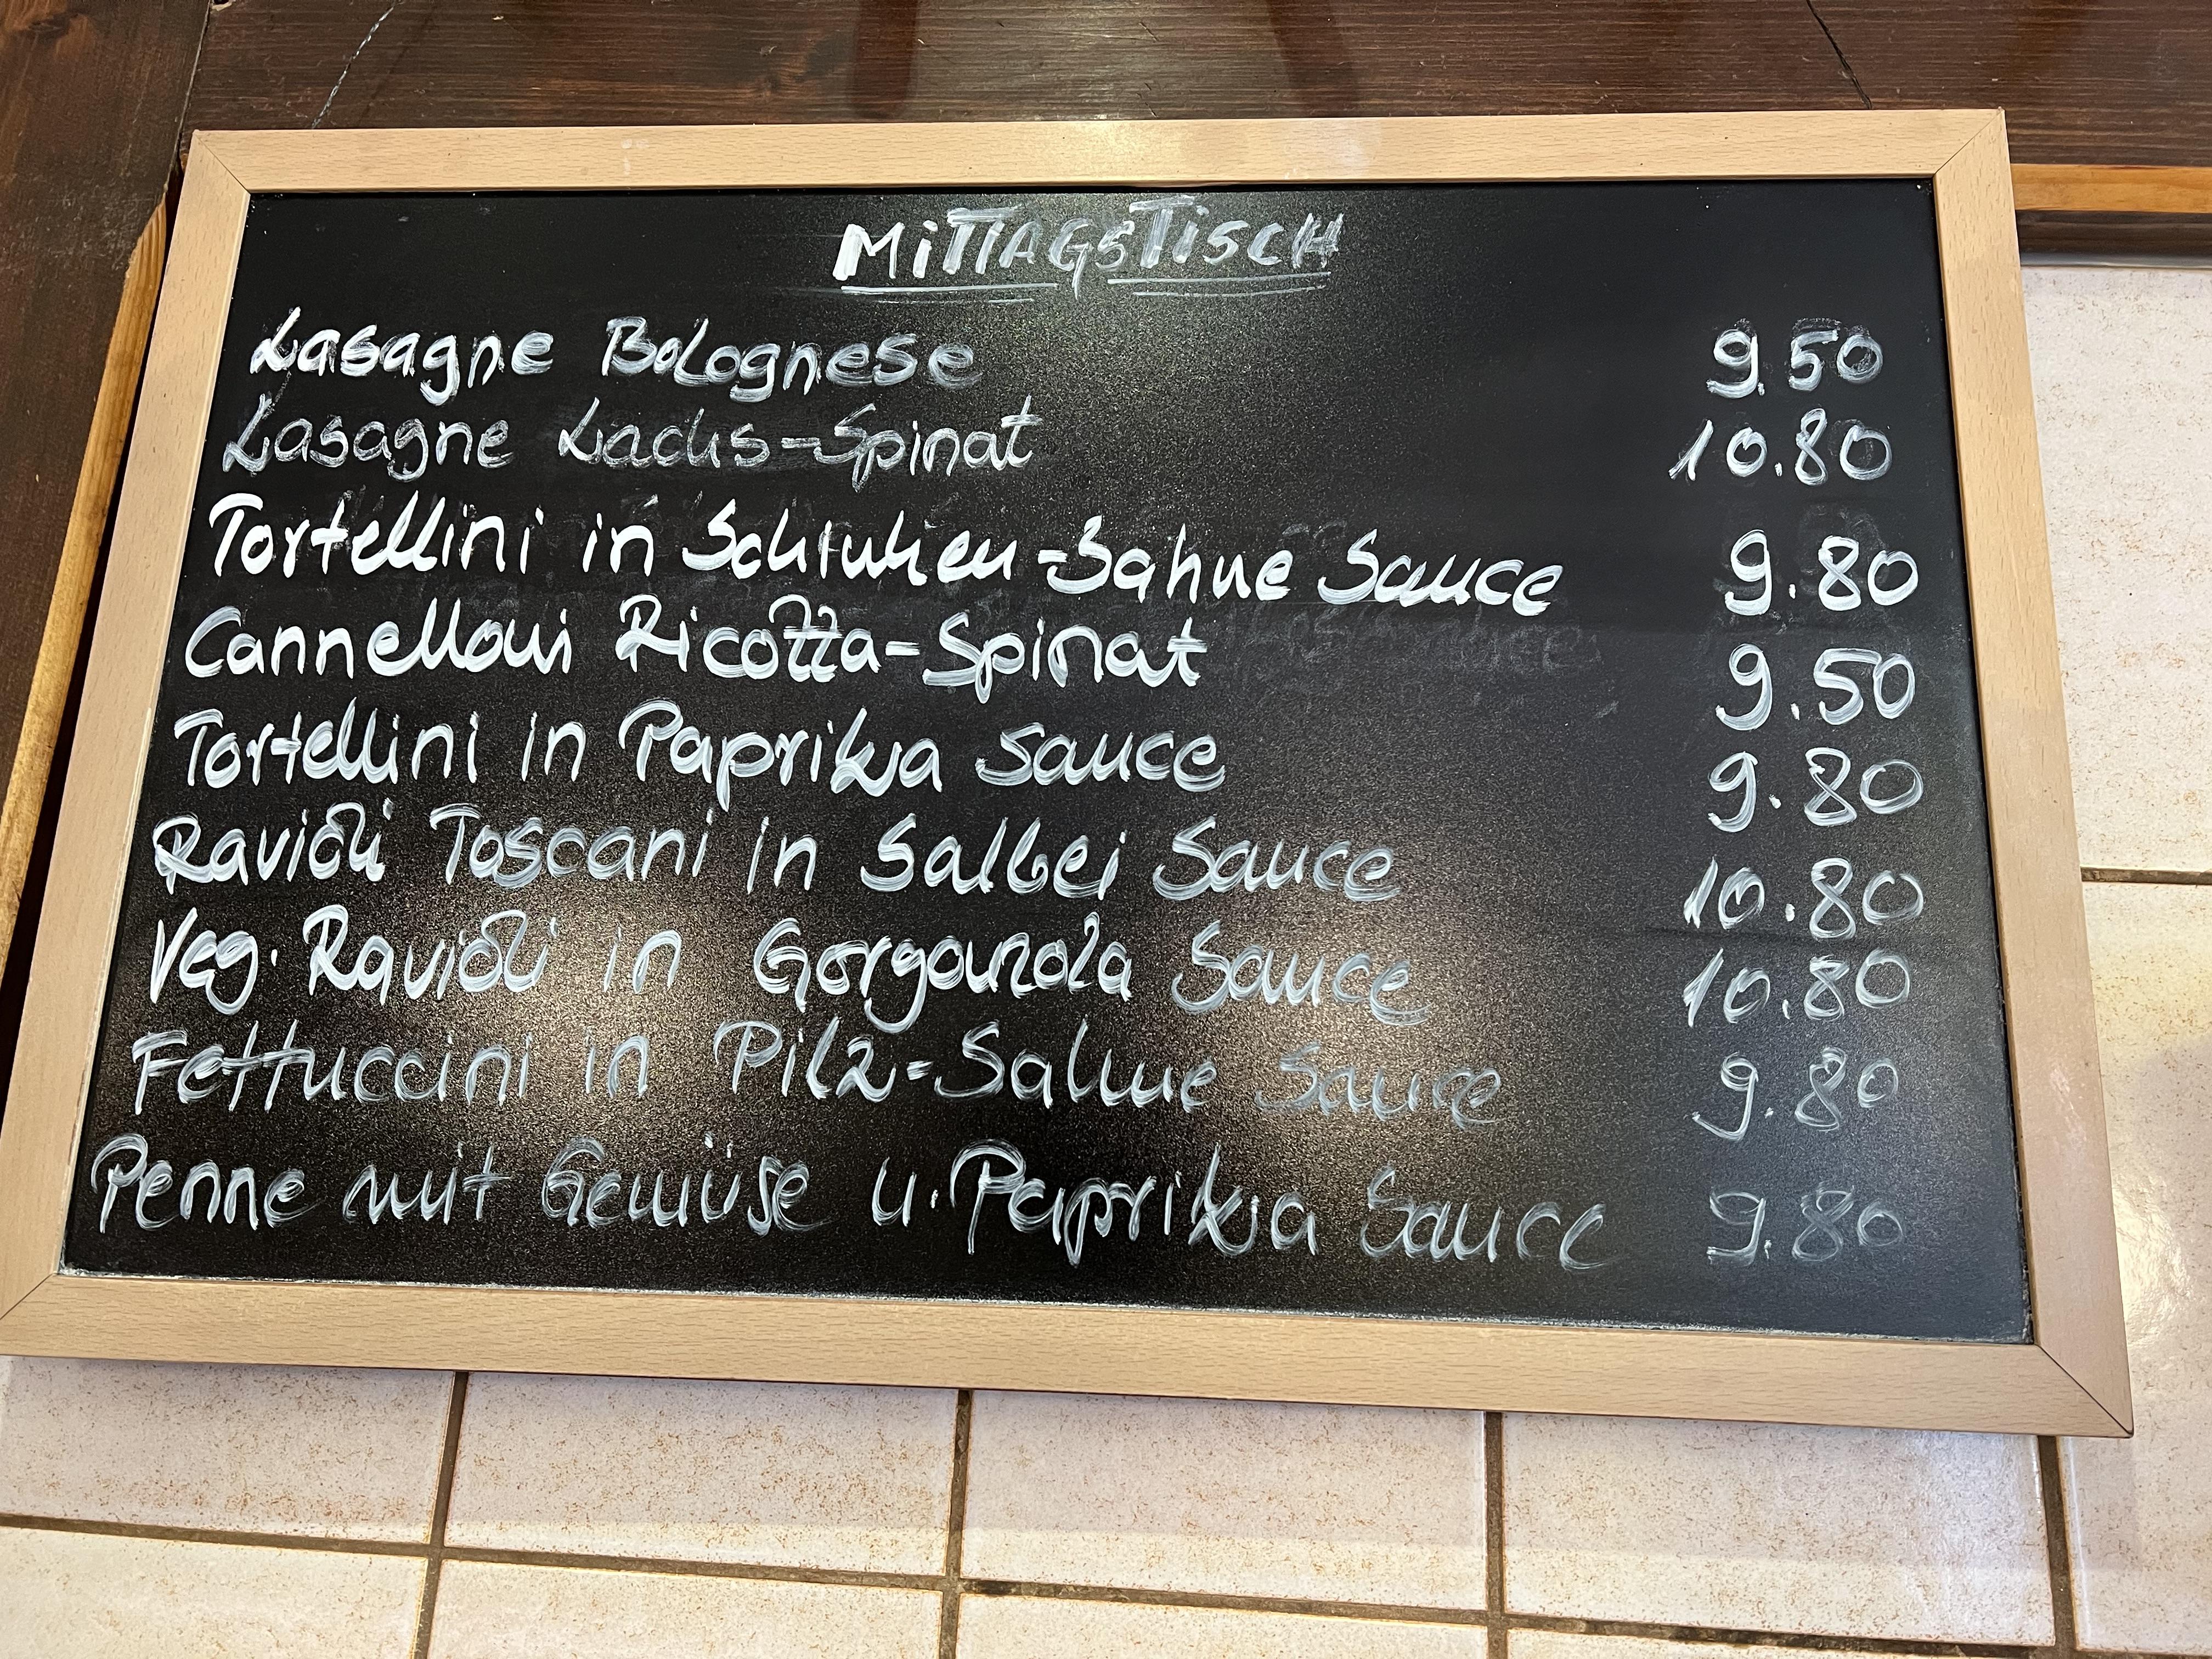 MITTAGSTISCH
Lasagne Bolognese 9.50
Lasagne Lachs-Spinat 10.80
Tortellini in Schinken-Sahne Sauce 9.80
Cannelloni Ricotta-Spinat 9.50
Tortellini in Paprika Sauce 9.80
Ravioli Toscani in Salbei Sauce 10.80
Veg. Ravioli in Gorgonzola Sauce 10.80
Fettuccini in Pilz-Sahne Sauce 9.80
Penne mit Gemüse u. Paprika Sauce 9.80